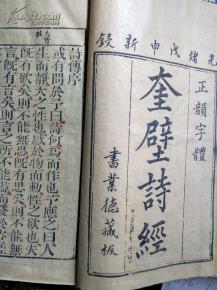 光緒戊申新鋟
正韻字體
奎壁詩經
書業德藏板
詩傳序
或有問於予曰詩何為而作也予應之曰人
生而靜天之性也感於物而動性之欲也夫
既有欲矣則不能無思既有思矣則不能無
言既有言矣則言之所不能盡而發於咨嗟